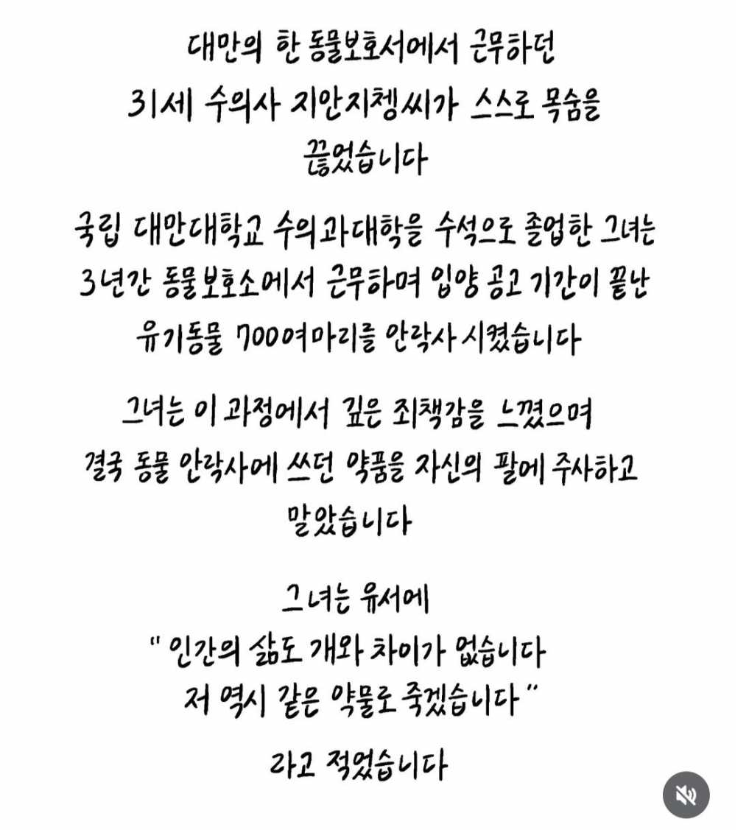 대만의 한 동물보호서에서 근무하던
31세 수의사 지안지쳉씨가 스스로 목숨을
끊었습니다
국립 대만대학교 수의과대학을 수석으로 졸업한 그녀는
3년간 동물보호소에서 근무하며 입양 공고 기간이 끝난
유기동물 700여마리를 안락사 시켰습니다
그녀는 이 과정에서 깊은 죄책감을 느꼈으며
결국 동물 안락사에 쓰던 약품을 자신의 팔에 주사하고
말았습니다
그녀는 유서에
"인간의 삶도 개와 차이가 없습니다
저 역시 같은 약물로 죽겠습니다"
라고 적었습니다